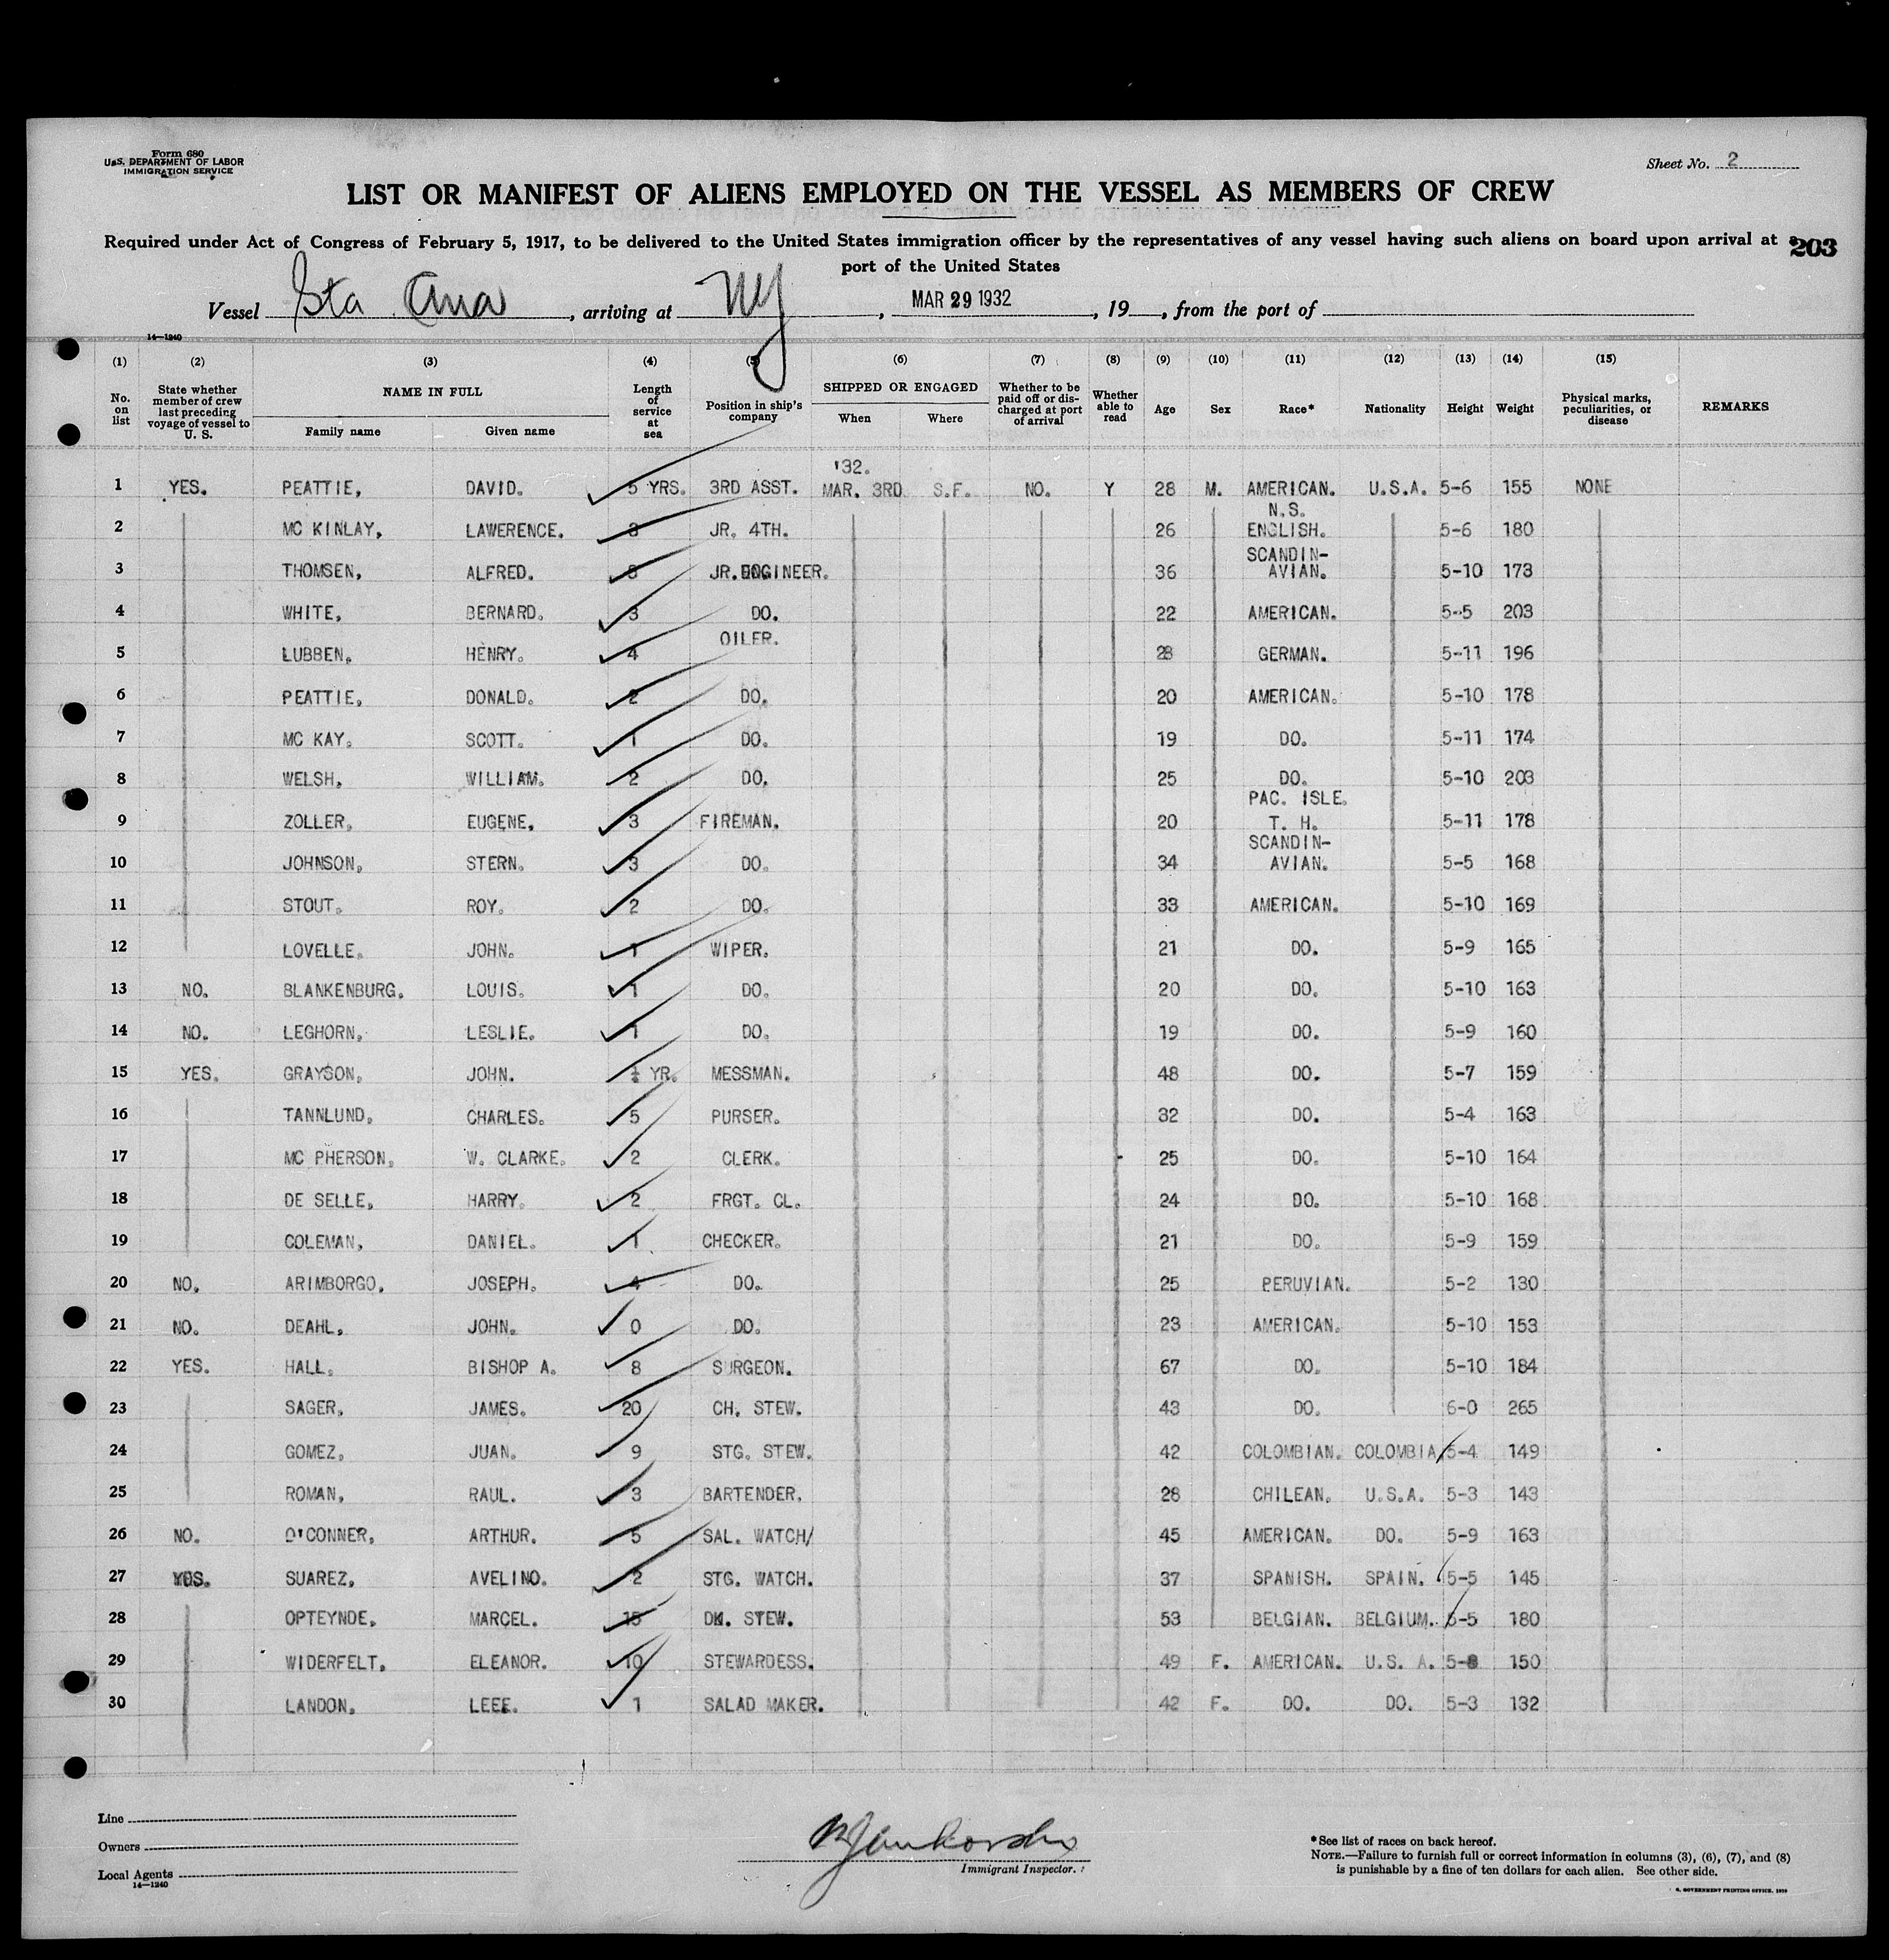 Form 680
U.S. DEPARTMENT OF LABOR
IMMIGRATION SERVICE
Sheet No. 2
LIST OR MANIFEST OF ALIENS EMPLOYED ON THE VESSEL AS MEMBERS OF CREW
Required under Act of Congress of February 5, 1917, to be delivered to the United States immigration officer by the representatives of any vessel having such aliens on board upon arrival at a
203
port of the United States
Vessel Sta Ana, arriving at NY, MAR 29 1932, 19, from the port of
14—1240
(1) (2) (3) (4) (5) (6) (7) (8) (9) (10) (11) (12) (13) (14) (15)
No. on list
State whether member of crew last preceding voyage of vessel to U. S.
NAME IN FULL
Family name Given name
Length of service at sea
Position in ship's company
SHIPPED OR ENGAGED
When Where
Whether to be paid off or discharged at port of arrival
Whether able to read
Age Sex Race* Nationality Height Weight
Physical marks, peculiarities, or disease
REMARKS
'32.
1 YES. PEATTIE, DAVID. 5 YRS. 3RD ASST. MAR. 3RD S.F. NO. Y 28 M. AMERICAN. U.S.A. 5-6 155 NONE
N.S.
2 MC KINLAY, LAWERENCE. 3 JR. 4TH. 26 ENGLISH. 5-6 180
SCANDIN-
3 THOMSEN, ALFRED. JR. ENGINEER. 36 AVIAN. 5-10 173
4 WHITE, BERNARD. 3 DO. 22 AMERICAN. 5-5 203
OILER.
5 LUBBEN, HENRY. 4 28 GERMAN. 5-11 196
6 PEATTIE, DONALD. 2 DO. 20 AMERICAN. 5-10 178
7 MC KAY. SCOTT. 1 DO. 19 DO. 5-11 174
8 WELSH, WILLIAM. 2 DO. 25 DO. 5-10 203
PAC. ISLE.
9 ZOLLER, EUGENE, 3 FIREMAN. 20 T. H. 5-11 178
SCANDIN-
10 JOHNSON, STERN. 3 DO. 34 AVIAN. 5-5 168
11 STOUT. ROY. 2 DO. 33 AMERICAN. 5-10 169
12 LOVELLE. JOHN. 1 WIPER. 21 DO. 5-9 165
13 NO. BLANKENBURG. LOUIS. 1 DO. 20 DO. 5-10 163
14 NO. LEGHORN. LESLIE. 1 DO. 19 DO. 5-9 160
15 YES. GRAYSON, JOHN. ½ YR. MESSMAN. 48 DO. 5-7 159
16 TANNLUND, CHARLES. 5 PURSER. 32 DO. 5-4 163
17 MC PHERSON, W. CLARKE. 2 CLERK. 25 DO. 5-10 164
18 DE SELLE, HARRY. 2 FRGT. CL. 24 DO. 5-10 168
19 COLEMAN, DANIEL. 1 CHECKER. 21 DO. 5-9 159
20 NO. ARIMBORGO, JOSEPH. 4 DO. 25 PERUVIAN. 5-2 130
21 NO. DEAHL, JOHN. 0 DO. 23 AMERICAN. 5-10 153
22 YES. HALL. BISHOP A. 8 SURGEON. 67 DO. 5-10 184
23 SAGER, JAMES. 20 CH. STEW. 43 DO. 6-0 265
24 GOMEZ, JUAN. 9 STG. STEW. 42 COLOMBIAN. COLOMBIA 5-4 149
25 ROMAN, RAUL. 3 BARTENDER. 28 CHILEAN. U.S.A. 5-3 143
26 NO. O'CONNER, ARTHUR. 5 SAL. WATCH/ 45 AMERICAN. DO. 5-9 163
27 YES. SUAREZ, AVELINO. 2 STG. WATCH. 37 SPANISH. SPAIN. 5-5 145
28 OPTEYNDE, MARCEL. 15 DK. STEW. 53 BELGIAN. BELGIUM. 5-5 180
29 WIDERFELT, ELEANOR. 10 STEWARDESS. 49 F. AMERICAN. U.S. A. 5-8 150
30 LANDON, LEEE. 1 SALAD MAKER. 42 F. DO. DO. 5-3 132
Line
Owners
Local Agents
14—1240
Immigrant Inspector.
*See list of races on back hereof.
NOTE.—Failure to furnish full or correct information in columns (3), (6), (7), and (8)
is punishable by a fine of ten dollars for each alien. See other side.
GOVERNMENT PRINTING OFFICE